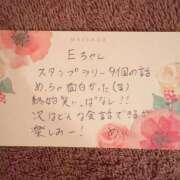 MESSAGE
Eちゃん
スタンプラリー9個の話
めっちゃ面白かった(笑)
終始笑いっぱなし!!
次はどんな会話できるか
楽しみー!